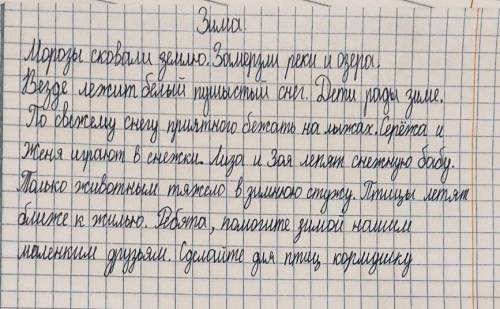 Зима.
Морозы сковали землю. Замерзли реки и озера.
Везде лежит белый пушистый снег. Дети рады зиме.
По свежему снегу приятного бежать на лыжах. Серёжа и
Женя играют в снежки. Лиза и Зоя лепят снежную бабу.
Только животным тяжело в зимнюю стужу. Птицы летят
ближе к жилью. Ребята, помогите зимой нашим
маленким друзьям. Сделайте для птиц кормушку